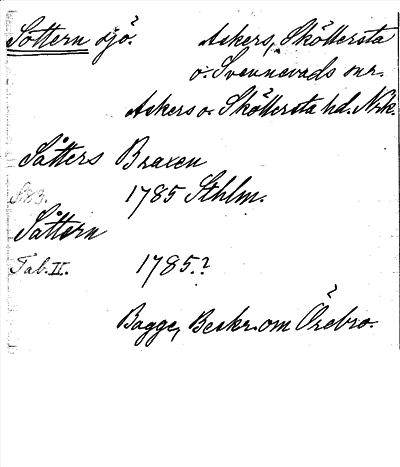 Sottern sjö.
Askers, Sköllersta
o. Svennevads snr.
Askers o. Sköllersta hd. Nrk.
Såtters Braxen
S. 83. 1785 Sthlm.
Såttern
Tab. II. 1785.?
Bagge, Beskr. om Örebro.